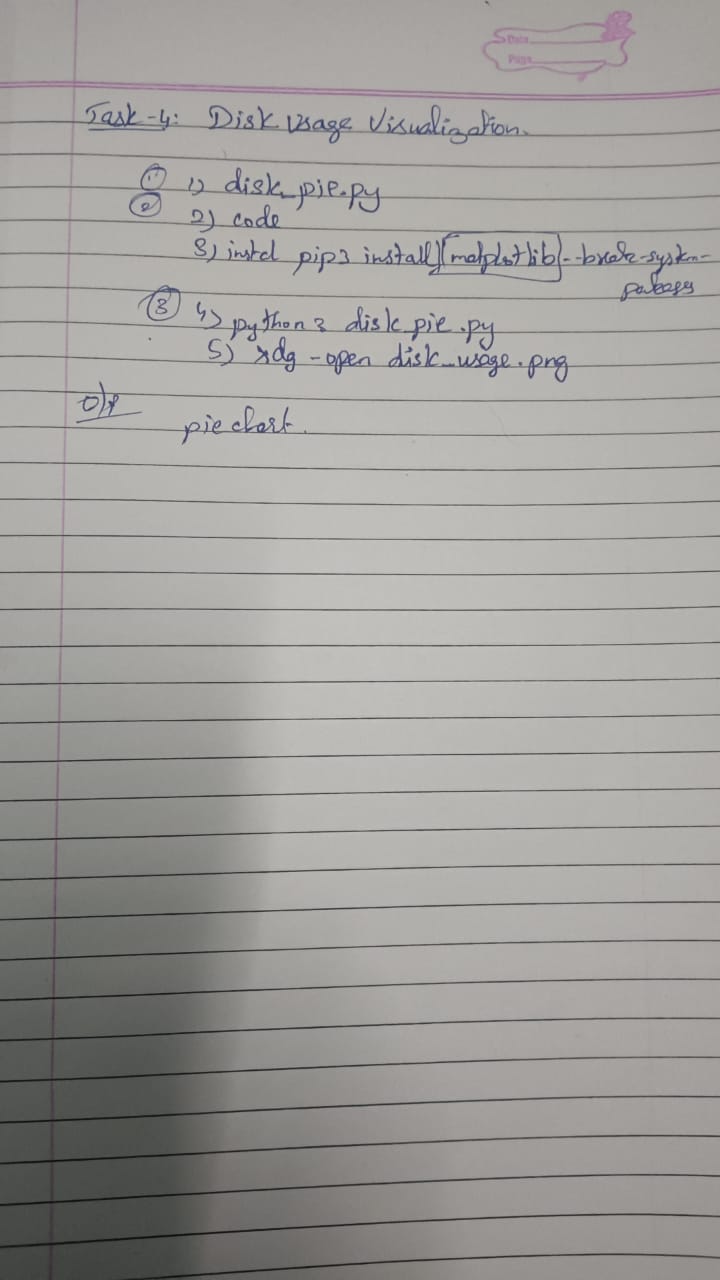 Date
Page
Task-4: Disk Usage Visualization.
① 1) disk_pie.py
② 2) code
3) instal pip3 install matplotlib --break-system-
pakages
③ 4) python3 disk_pie.py
5) xdg-open disk_usage.png
o/p
pie chart.